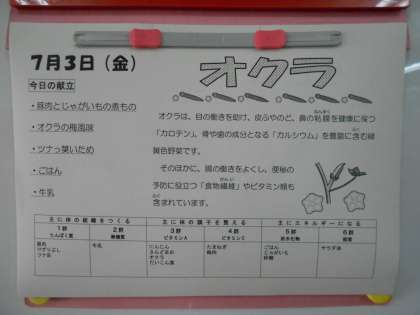 7月3日（金）
オクラ
今日の献立
・豚肉とじゃがいもの煮もの
・オクラの梅風味
・ツナっ葉いため
・ごはん
・牛乳
オクラは、目の働きを助け、皮ふやのど、鼻の粘膜を健康に保つ
「カロテン」、骨や歯の成分となる「カルシウム」を豊富に含む緑
黄色野菜です。
そのほかに、腸の働きをよくし、便秘の
予防に役立つ「食物繊維」やビタミン類も
含まれています。
主に体の組織をつくる 主に体の調子を整える 主にエネルギーになる
1群 2群 3群 4群 5群 6群
たんぱく質 無機質 ビタミンA ビタミンC 炭水化物 脂質
豚肉 牛乳 にんじん たまねぎ ごはん サラダ油
さんどまめ 梅肉 じゃがいも
ツナ缶 オクラ 砂糖
だいこん葉